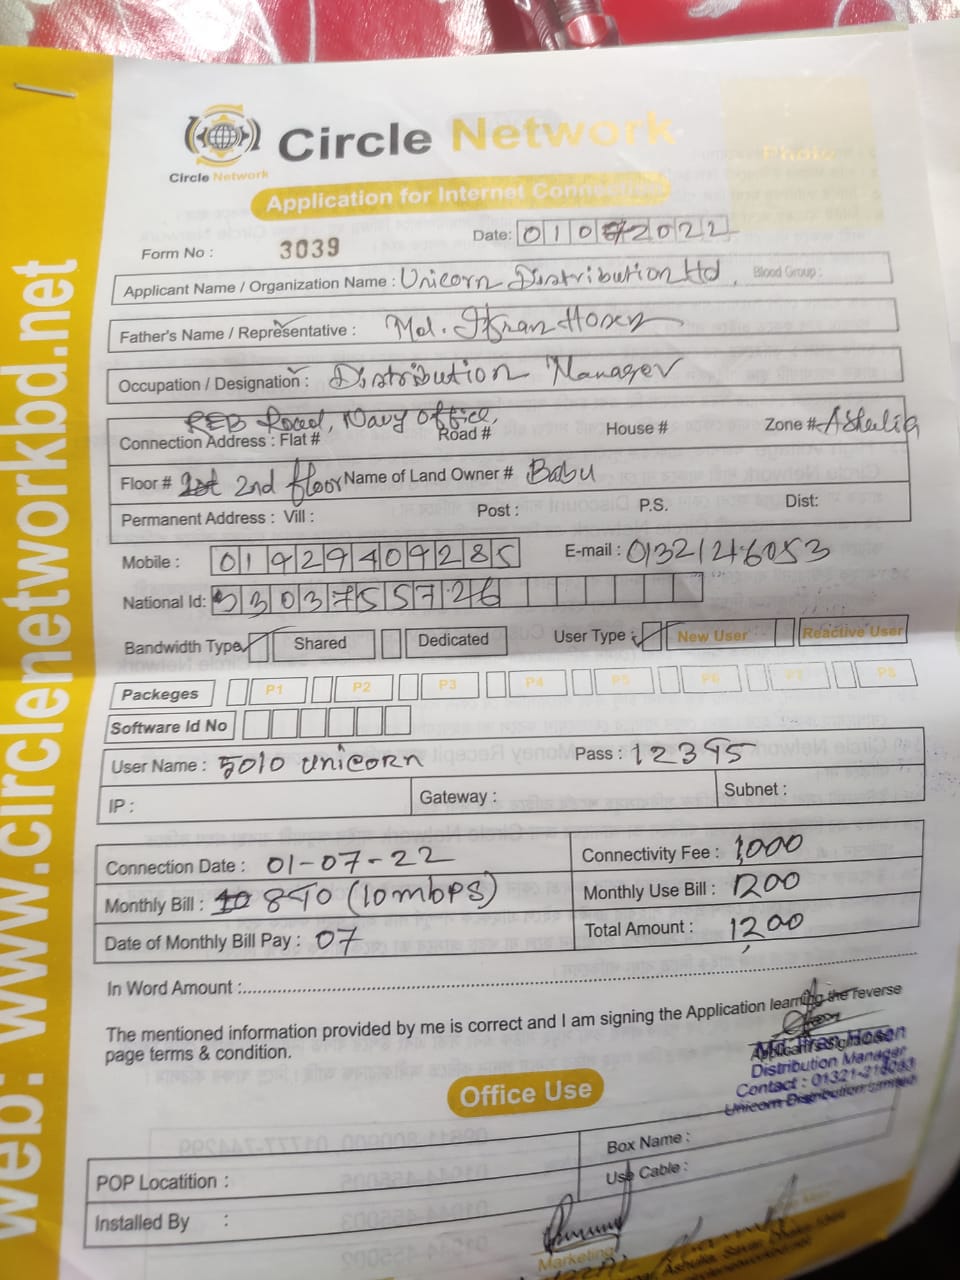 Circle Network
Circle Network
Photo
Application for Internet Connection
Date: 01072022
Form No : 3039
Applicant Name / Organization Name : Unicorn Distribution Ltd. Blood Group :
Father's Name / Representative : Md. Hosen
Occupation / Designation : Distribution Manager
REB Road, Navy Office,
Connection Address : Flat # Road # House # Zone # Ashulia
Floor # 2nd floor Name of Land Owner # Babu
Permanent Address : Vill : Post : P.S. Dist:
Mobile : 01929409285 E-mail : 0132126053
National Id: 3303755726
Bandwidth Type Shared Dedicated User Type : New User Reactive User
Packeges P1 P2 P3 P4 P5 P6 P7 P8
Software Id No
User Name : 5010 unicorn Pass : 12395
IP : Gateway : Subnet :
Connection Date : 01-07-22 Connectivity Fee : 1,000
Monthly Bill : 840 (10mbps) Monthly Use Bill : 1200
Date of Monthly Bill Pay : 07 Total Amount : 1,200
In Word Amount :
The mentioned information provided by me is correct and I am signing the Application learning the reverse
page terms & condition.
Md. Hosen
Distribution Manager
Contact : 01321-
Unicorn Distribution Limited
Office Use
Box Name :
POP Locatition : Use Cable :
Installed By :
Marketing
Ashulia, Savar, Dhaka-
web: www.circlenetworkbd.net